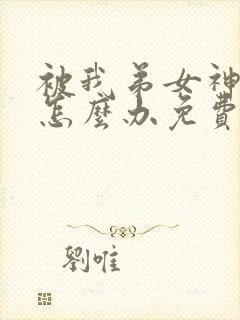 被我弟女神
怎麼办免費
劉唯